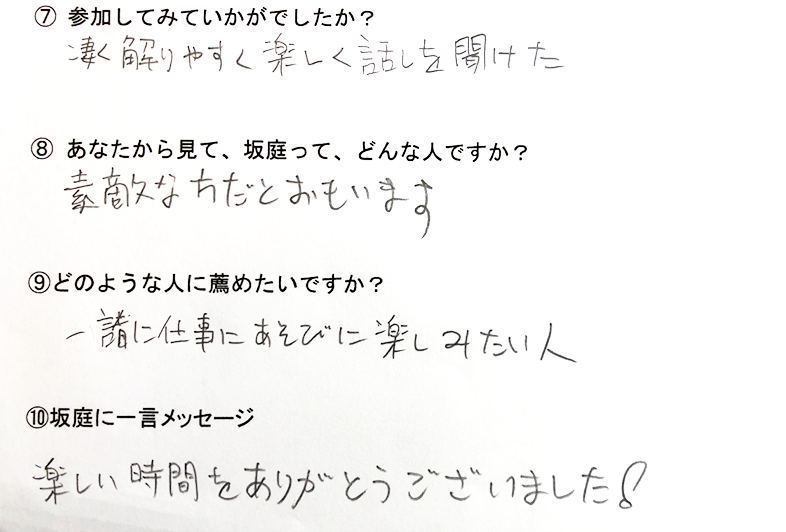 ⑦ 参加してみていかがでしたか？
凄く解りやすく楽しく話しを聞けた
⑧ あなたから見て、坂庭って、どんな人ですか？
素敵な方だとおもいます
⑨どのような人に薦めたいですか？
一諸に仕事にあそびに楽しみたい人
⑩坂庭に一言メッセージ
楽しい時間をありがとうございました!